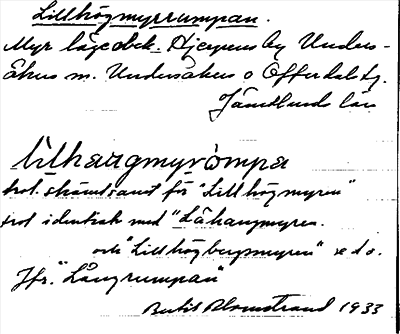 Lillhögmyrrumpan.
Myr läge obek. Hjerpens by Unders-
åkers s. Undersåkers o Offerdal tg.
Jämtlands län
lilhaugmyrompa
trol. skämtsamt för "Lillhögmyren"
trol identisk med "Låhaugmyren
och "Lillhögbergsmyren"
Jfr. "Långrumpan"
Bertil Blomstrand 1933